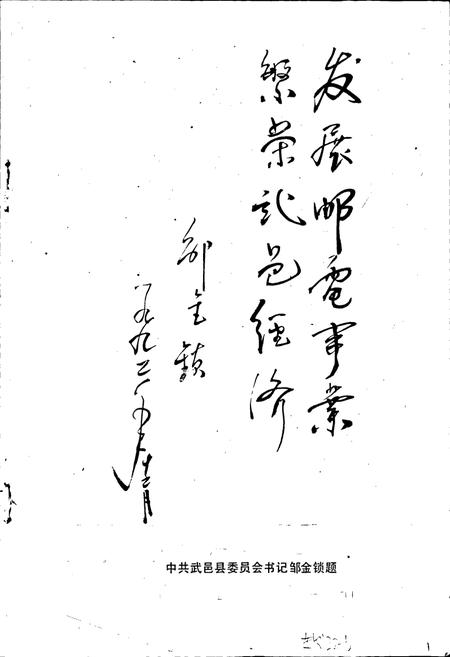 发展邮電事業
繁荣武邑经济
邹金锁
一九九二年
中共武邑县委员会书记邹金锁题